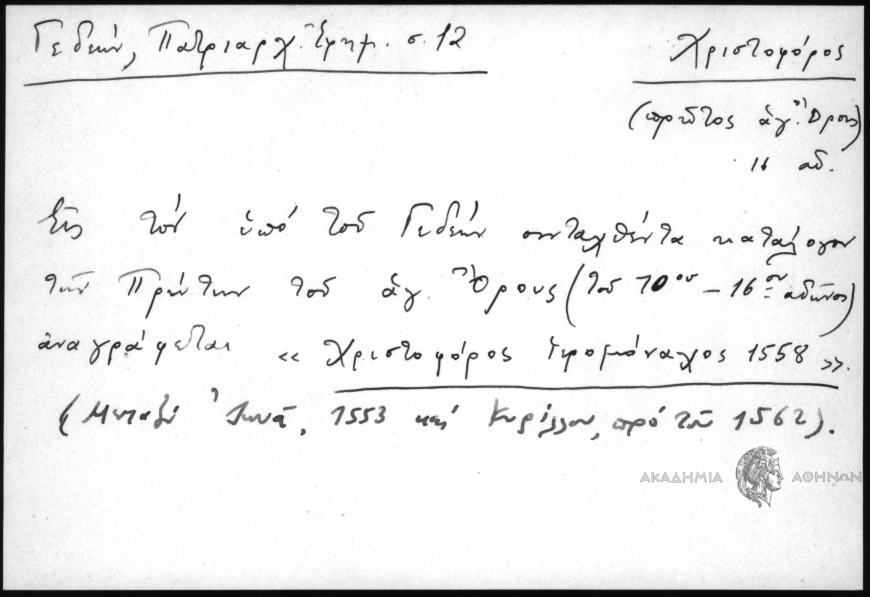 Γεδεών, Πατριαρχ. Ἐφημ. σ. 12
Χριστοφόρος
(πρῶτος ἁγ. Ὄρους)
16 αἰ.
Εἰς τόν ὑπό τοῦ Γεδεών συνταχθέντα κατάλογον
τῶν Πρώτων τοῦ ἁγ. Ὄρους (τοῦ 10ου – 16ου αἰῶνος)
ἀναγράφεται « Χριστοφόρος ἱερομόναχος 1558 ».
(Μεταξύ Ἰωνᾶ, 1553 καί Κυρίλλου, πρό τοῦ 1562).
ΑΚΑΔΗΜΙΑ ΑΘΗΝΩΝ